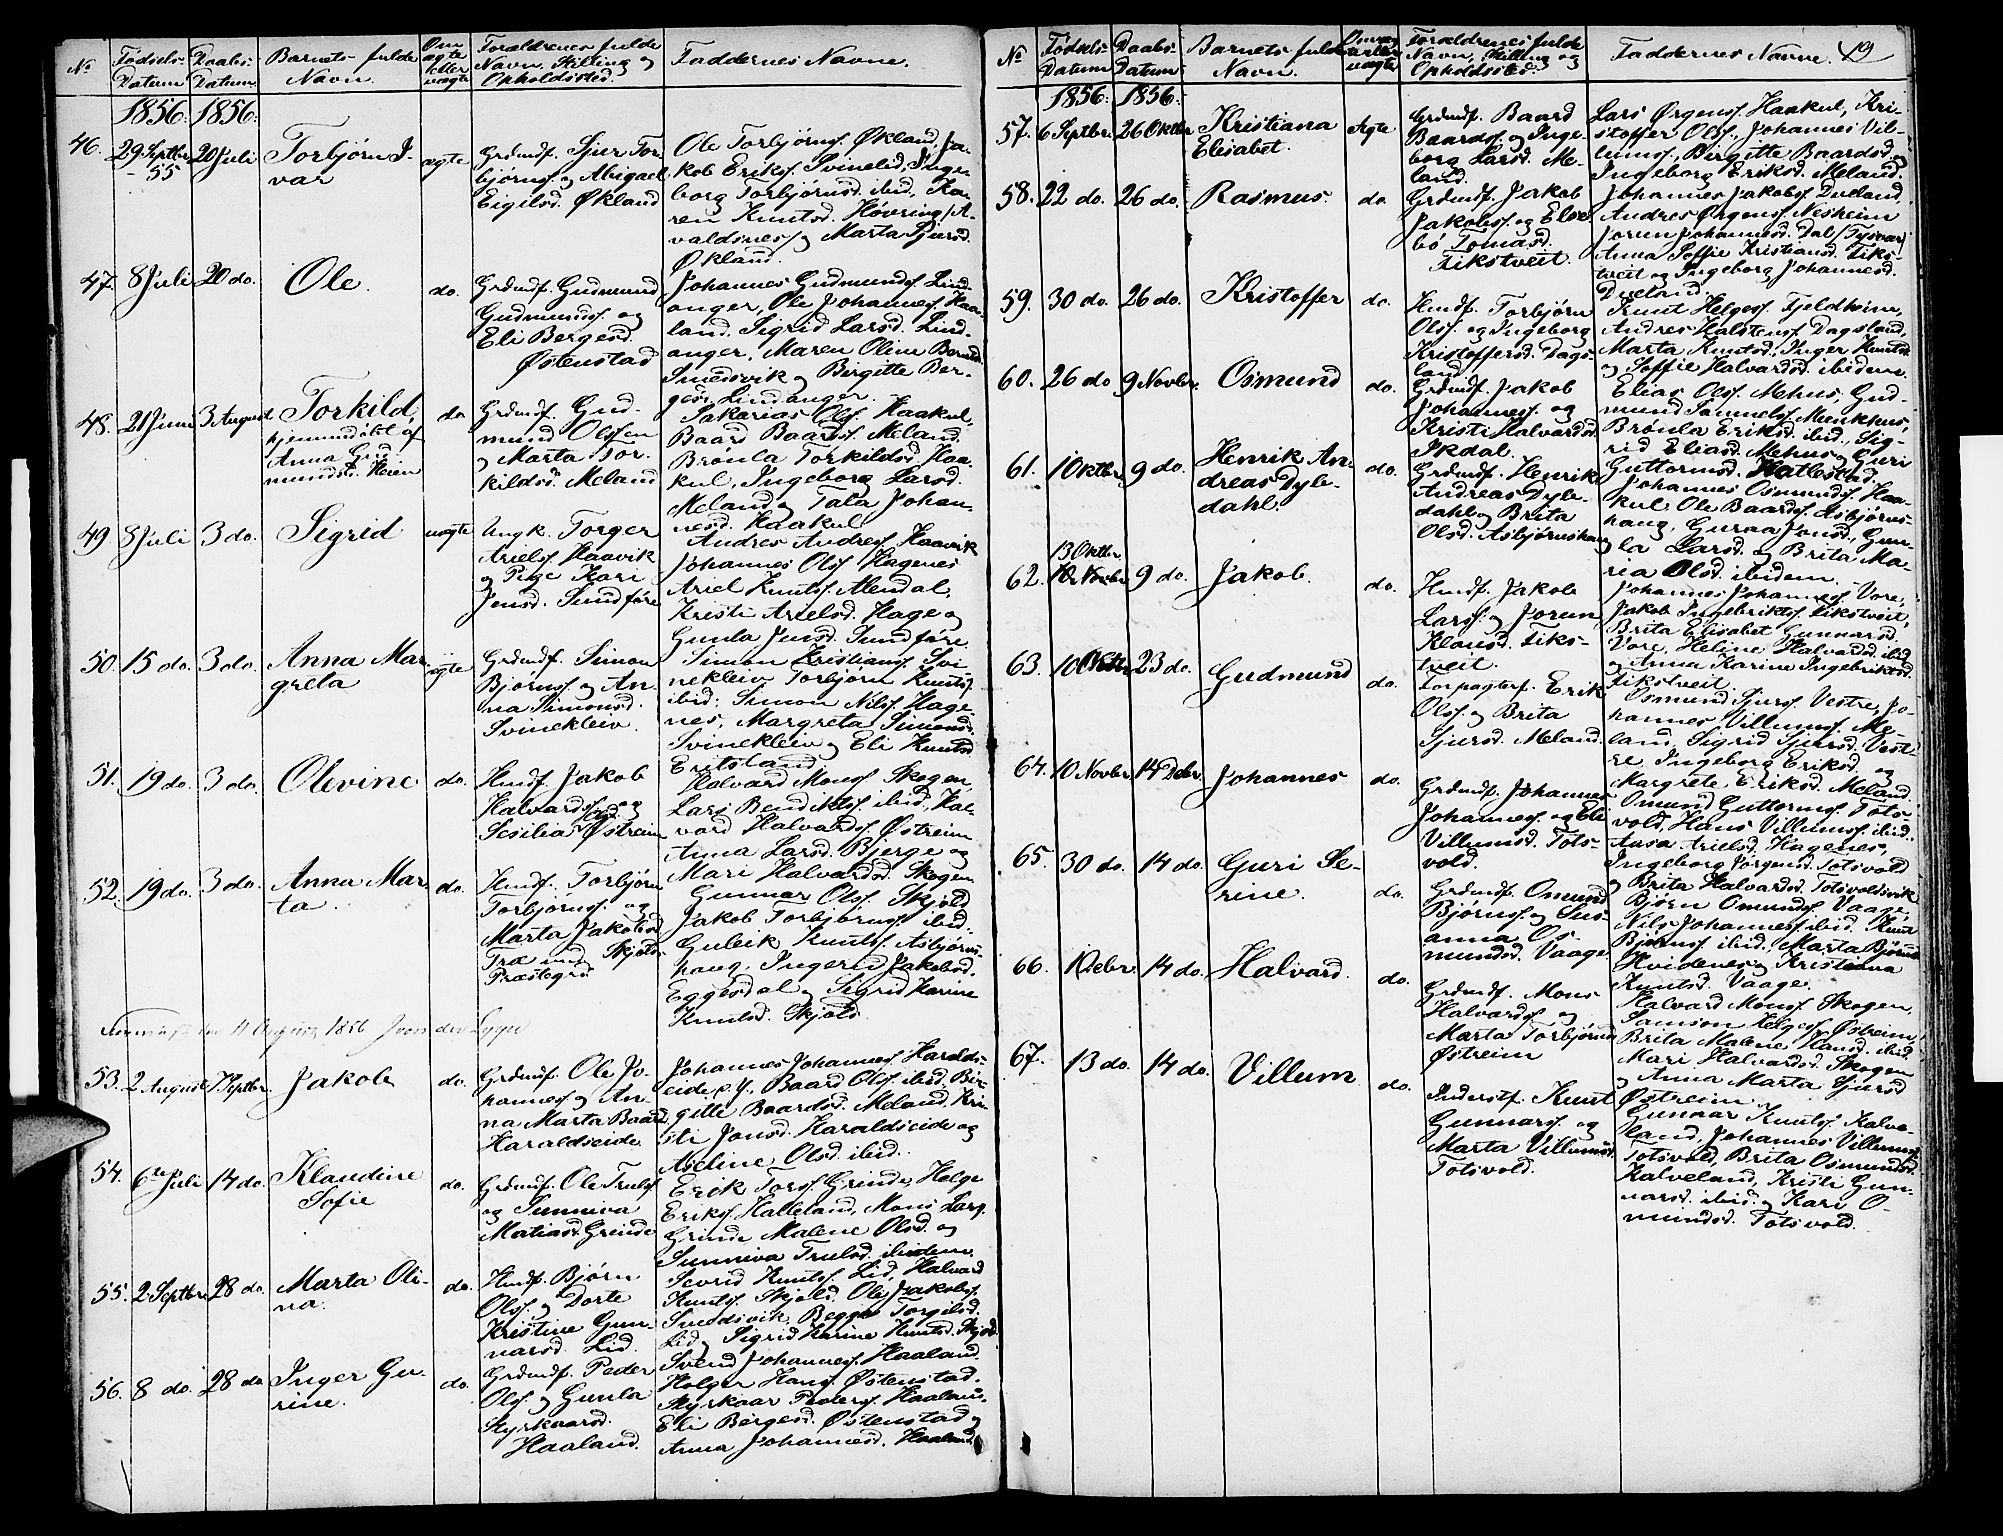 No | Fødsels- Datum | Daabs- Datum | Barnets fulde Navn. | Om ægte eller uægte | Forældrenes fulde Navn, Stilling og Opholdssted. | Faddernes Navne.
1856. 1856.
46. 29 Septbr -55 | 20 Juli | Torbjørn I-
var | ægte | Grdmdf. Sjur Tor-
bjørnsf. og Abigael
Eigilsd. Økland | Ole Torbjørnsf. Økland, Ja-
kob Eriksf. Svinelid, Inge-
borg Torbjørnsd. ibid, Ka-
ren Knutsd. Høvring /A-
valdsnes/ og Marta Sjursd.
Økland.
47. 8 Juli | 20 do. | Ole. | do. | Grdmdf. Gudmund
Gudmundsf. og
Eli Bergesd.
Østenstad | Johannes Gudmundsf. Lind-
anger, Ole Johannesf. Haa-
land. Sigrid Larsd. Lind-
anger, Maren Oline Berntsd.
Smedsvik og Birgitte Ber-
gesd. Lindanger.
48. 21 Juni | 3 August | Torkild,
hjemmedøbt af
Anna Gud-
mundsd. | do. | Grdmdf. Gud-
mund Olsen
og Marta Tor-
kildsd. Meland | Sakarias Olsf. Haakul,
Baard Baardsf. Meland.
Brønla Torkildsd. Haa-
kul, Ingeborg Larsd.
Meland og Tala Johan-
nesd. Haakul.
49. 8 Juli | 3 do. | Sigrid | uægte | Ungk. Torger
Arielsf. Haavik
og Pige Kari
Jensd. Sundføre | Andres Andresf. Haavik
Johannes Olsf. Hagenes
Ariel Knutsf. Alendal,
Kristi Arielsd. Hage og
Gunla Jensd. Sundføre.
50. 15 do. | 3 do. | Anna Mar-
greta | ægte | Grdmdf. Simon
Bjørnsf. og An-
na Simonsd.
Svinekleiv. | Simon Kristiansf. Svi-
nekleiv Torbjørn Knutsf.
ibid: Simon Nilsf. Hage-
nes, Margreta Simonsd.
Svinekleiv og Eli Knutsd.
Eritsland.
51. 19 do. | 3 do. | Olevine | do. | Hmdf. Jakob
Halvardsf. og
Sesilia Østreim | Halvard Monsf. Skogen
Lars Bendiktsf. ibid, Hal-
vard Halvardsf. Østreim
Anna Larsd. Bjerge og
Mari Halvardsd. Skogen.
52. 19 do. | 3 do. | Anna Mar-
ta. | do. | Hmdf. Torbjørn
Torbjørnsf. og
Marta Jakobsd.
Træ und. Skjold
Præstegrd. | Gunnar Olsf. Skjold
Jakob Torbjørnsf. ibid.
Guleik Knutsf. Asbjørns-
haug, Ingerid Jakobsd.
Eggesdal og Sigrid Karine
Knutsd. Skjold.
11 August 1856
53. 2 August | 7 Septbr. | Jakob | do. | Grdmdf. Ole Jo-
hannesf. og An-
na Marta Baards.
Haraldseide. | Johannes Johannesf. Haralds-
eide, Baard Olsf. ibid. Bir-
gitte Baardsd. Meland, Kri-
sti Jonsd. Haraldseide og
Aseline Olsd. ibid.
54. 6te Juli | 14 do. | Klaudine
Sofie | do. | Grdmdf. Ole Trulsf.
og Sunniva
Matiasd. Grinde | Erik Torsf. Grinde, Helge
Eriksf. Halleland, Mons Larsf.
Grinde Malene Olsd. og
Sunniva Trulsd. ibidem.
55. 2 Septbr. | 28 do. | Marta Oli-
na. | do. | Hmdf. Bjørn
Olsf. og Dorte
Kristine Gun-
narsd. Lid. | Sevrid Knutsf. Lid, Halvard
Knutsf. Skjold. Ole Jakobsf.
Smedsvik, Begga Torgilsd.
Lid og Sigrid Karine Knutsd. Skjold.
56. 8 do. | 28 do | Inger Gu-
rine. | do. | Grdmdf. Peder
Olsf. og Gunla
Styrkaarsd.
Haaland. | Svend Johannesf. Haaland.
Holger Hansf. Østenstad.
Styrkaar Pedersf. Haaland.
Eli Bergesd. Østenstad og
Anna Johannesd. Haaland.
No | Fødsels- Datum | Daabs- Datum | Barnets fulde Navn. | Om ægte eller uægte | Forældrenes fulde Navn, Stilling og Opholdssted. | Faddernes Navne. 19
1856. 1856.
57. 6 Septbr. | 26 Oktbr | Kristiana
Elisabet. | Ægte | Grdmdf. Baard
Baardsf. og Inge-
borg Larsd. Me-
land. | Lars Ørgensf. Haakul, Kri-
stoffer Olsf., Johannes Vil-
lumsf., Birgitte Baardsd. og
Ingeborg Eriksd. Meland.
58. 22 do. | 26 do. | Rasmus. | do. | Grdmdf. Jakob
Jakobsf. og Else-
bø Tomasd.
Fikstveit. | Johannes Jakobsf. Dueland,
Andres Ørgensf. Nesheim
Jorun Johannesd. Dal /Tysvær/
Anna Soffie Kristiansd. Fiks-
tveit og Ingeborg Johannesd.
Dueland.
59. 30 do. | 26 do. | Kristoffer | do. | Hmdf. Torbjørn
Olsf. og Ingeborg
Kristoffersd. Dags-
land. | Knut Helgesf. Fjeldheim,
Andres Halstensf. Dagsland,
Marta Knutsd., Inger Knutsd.
og Soffie Halvardsd. ibidem.
60. 26 do | 9 Novbr. | Osmund | do. | Grdmdf. Jakob
Johannesf. og
Kristi Halvardsd.
Ikdal. | Elias Olsf. Mehus, Gud-
mund Samuelsf. Munkhus,
Brønla Eriksd. ibid, Sig-
rid Eliasd. Mehus og Guri
Guttormsd. Hatlestad.
61. 1 Oktbr. | 9 do. | Henrik An-
dreas Dyle-
dahl. | do. | Grdmdf. Henrik
Andreas Dyle-
dahl og Brita
Olsd. Asbjørnshaug | Johannes Osmundsf. Haa-
kul Ole Baardsf. Asbjørns-
haug, Guraa Jonsd., Gun-
la Larsd. og Brita Ma-
ria Olsd. ibidem.
62. 13 Oktbr | 9 do. | Jakob. | do. | Hmdf. Jakob
Larsf. og Jorun
Klausd. Fiks-
tveit. | Johannes Johannesf. Vore,
Jakob Ingebriktsf. Fikstveit,
Brita Elisabet Gunnarsd.
Vore, Heline Halvardsd. ibid.
og Anna Karine Ingebriktsd.
Fikstveit.
63. 10 Oktbr | 23 do. | Gudmund | do. | Forpagterf. Erik
Olsf. og Brita
Sjursd. Meland. | Osmund Sjursf. Vestre, Jo-
hannes Villumsf. Me-
land, Sigrid Sjursd. Vest-
re, Ingeborg Eriksd. og
Margrete Eriksd. Meland.
64. 10 Novbr. | 14 Debr. | Johannes | do. | Grdmdf. Johannes
Johannesf. og Eli
Villumsd. Tots-
vold. | Osmund Guttormsf. Tots-
vold, Hans Villumsf. ibid.
Aasa Arielsd. Hagenes,
Ingeborg Jørgensd. Totsvold
og Brita Halvardsd. Totsvoldsvik
65. 30 do. | 14 do. | Guri Se-
rine. | do. | Grdmdf. Omund
Bjørnsf. og Sus-
anna Os-
mundsd. Vaage | Bjørn Omundsf. Vaage,
Nils Johannesf. ibid. Knut
Bjørnsf. ibid. Marta Bjørnsd.
Hvidenes og Kristiana
Knutsd. Vaage.
66. 1 Debr. | 14 do. | Halvard. | do. | Grdmdf. Mons
Halvardsf. og
Marta Torbjørnsd.
Østreim | Halvard Monsf. Skogen,
Samson Helgesf. Østreim,
Brita Malene Hansd. ibid.
Mari Halvardsd. Skogen
og Anna Marta Sjursd
Østreim.
67. 13 do. | 14 do. | Villum | do. | Inderstf. Knut
Gunnarsf. og
Marta Villumsd.
Totsvold. | Gunnar Knutsf. Kalve-
land, Johannes Villumsf.
Totsvold, Brita Osmundsd.
Kalveland, Kristi Gun-
narsd. ibid. og Kari O-
mundsd. Totsvold.